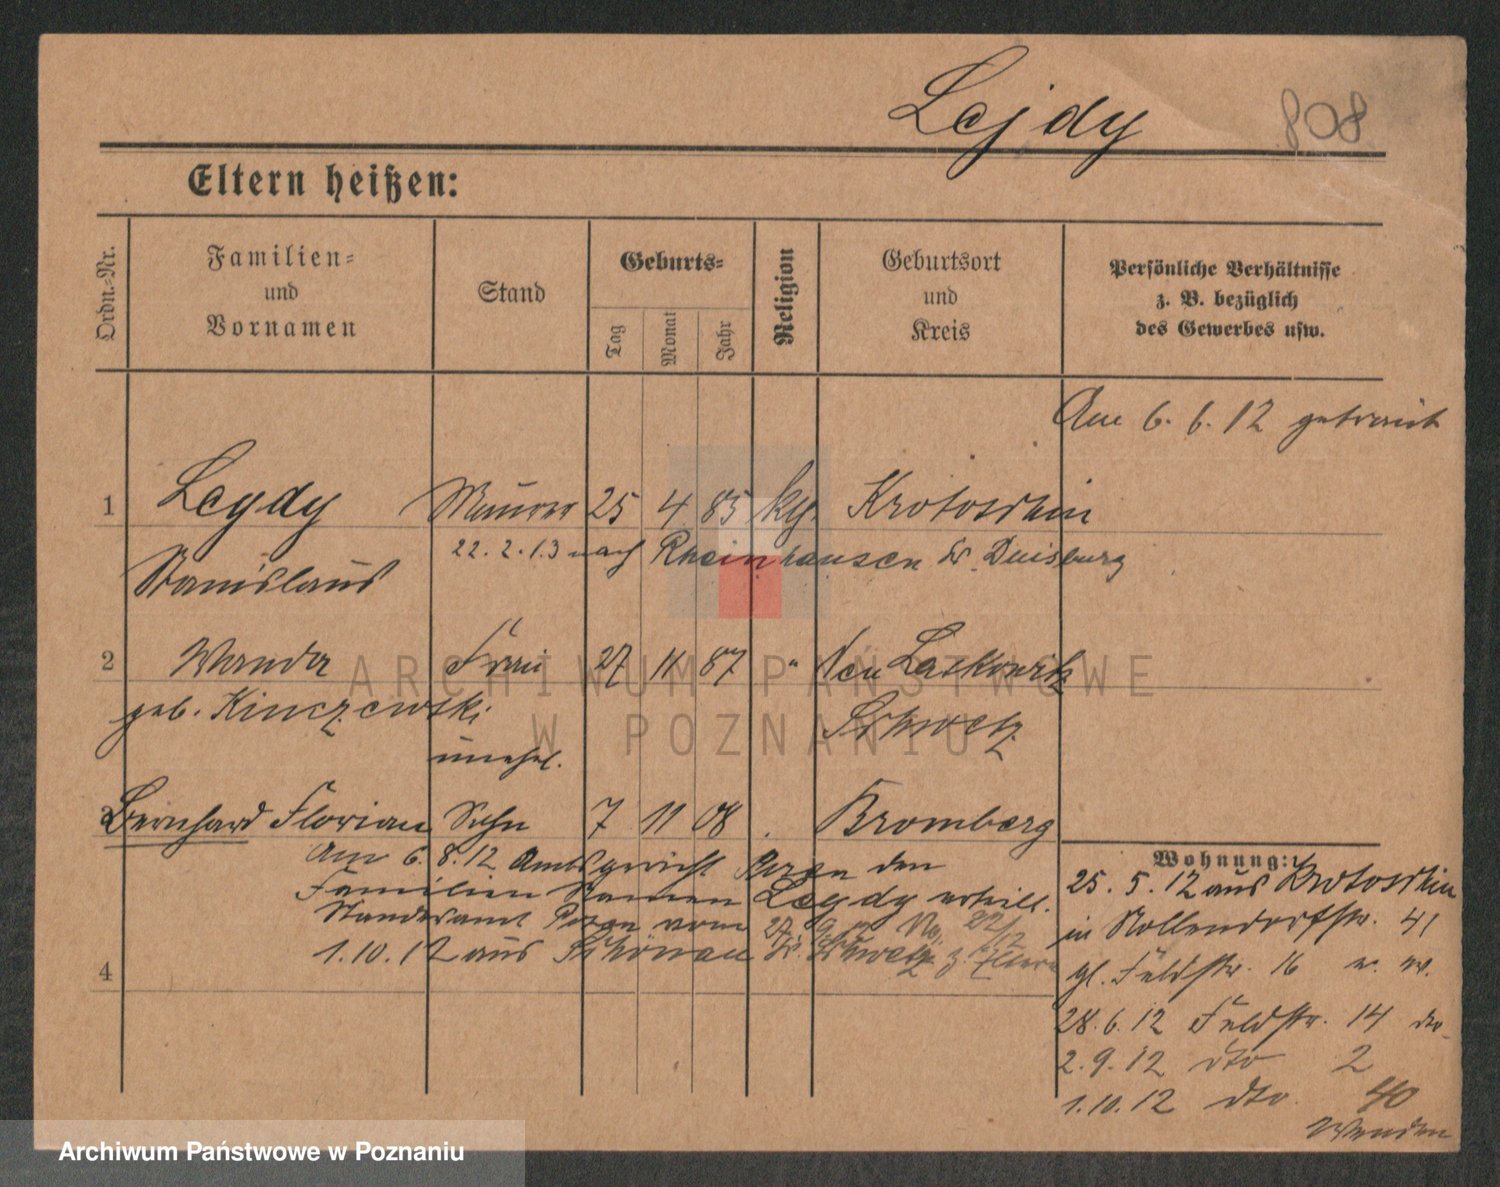 Lejdy 808
Eltern heißen:
Ordn.-Nr.
Familien-
und
Vornamen
Stand
Geburts-
Tag
Monat
Jahr
Religion
Geburtsort
und
Kreis
Persönliche Verhältnisse
z. B. bezüglich
des Gewerbes usw.
Am 6. 6. 12 getraut
1 Leydy Maurer 25 4 85 kg. Krotoschin
22. 2. 13 nach Rheinhausen Kr. Duisburg
Stanislaus
2 Wanda Frau 27 11 87 " Neu Laskowitz
geb. Kinczewski Schwetz
unehel.
3 Bernhard Florian Sohn 7 11 08 Bromberg
Am 6. 8. 12 Amtsgericht Posen den
Familien Namen Leydy erteilt.
Standesamt Posen vom 27. 9. 12 No. 22/12
1. 10. 12 aus Schönau Kr. Schwetz z. Eltern
4
Wohnung:
25. 5. 12 aus Krotoschin
in Nollendorfstr. 41
gl. Feldstr. 16
28. 6. 12 Feldstr. 14 dto
2. 9. 12 dto 2
1. 10. 12 dto. 40
ARCHIWUM PAŃSTWOWE
W POZNANIU
Archiwum Państwowe w Poznaniu